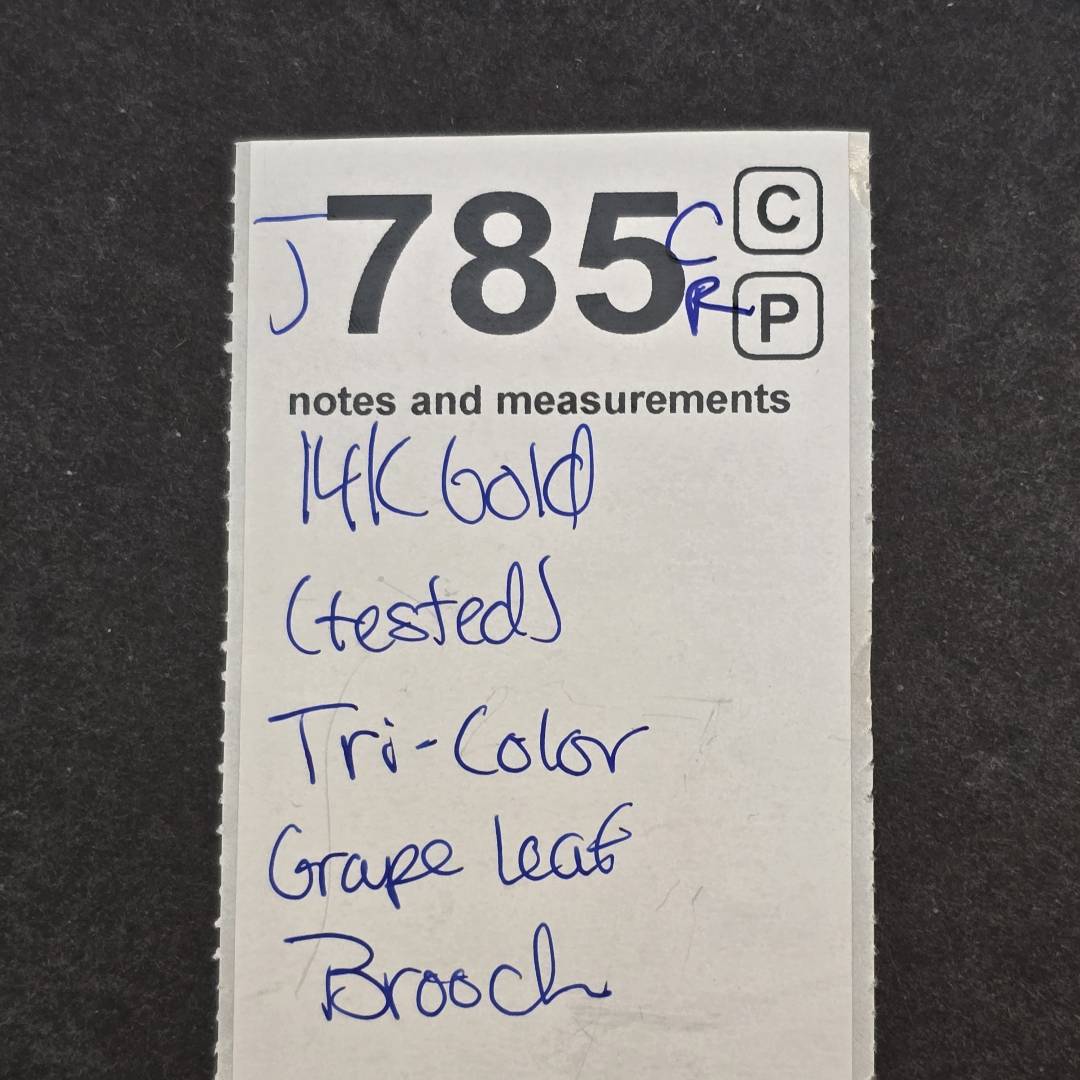 J785 C C
R P
notes and measurements
14K Gold
(tested)
Tri-Color
Grape Leaf
Brooch